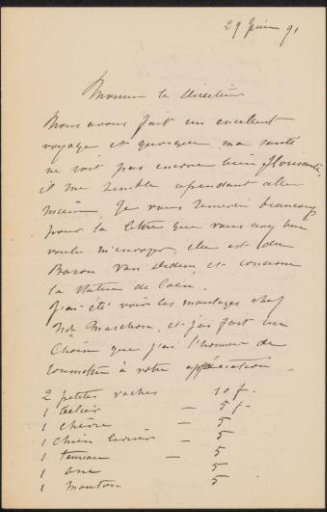 29 Juin 91
Monsieur le Directeur
Nous avons fait un excellent
voyage et quoique ma santé
ne soit pas encore bien florissante,
il me semble cependant aller
mieux. Je vous remercie beaucoup
pour la lettre que vous avez bien
voulu m'envoyer, elle est du
Baron Van Dedem, et concerne
la statue de Coen.
J'ai été voir les moulages chez
Mr Marchon, et j'ai fait un
choix que j'ai l'honneur de
soumettre à votre appréciation.
2 petites vaches 10 f.
1 — 5 f.
1 chèvre — 5
1 chien lévrier — 5
1 taureau — 5
1 ane 5
1 mouton 5